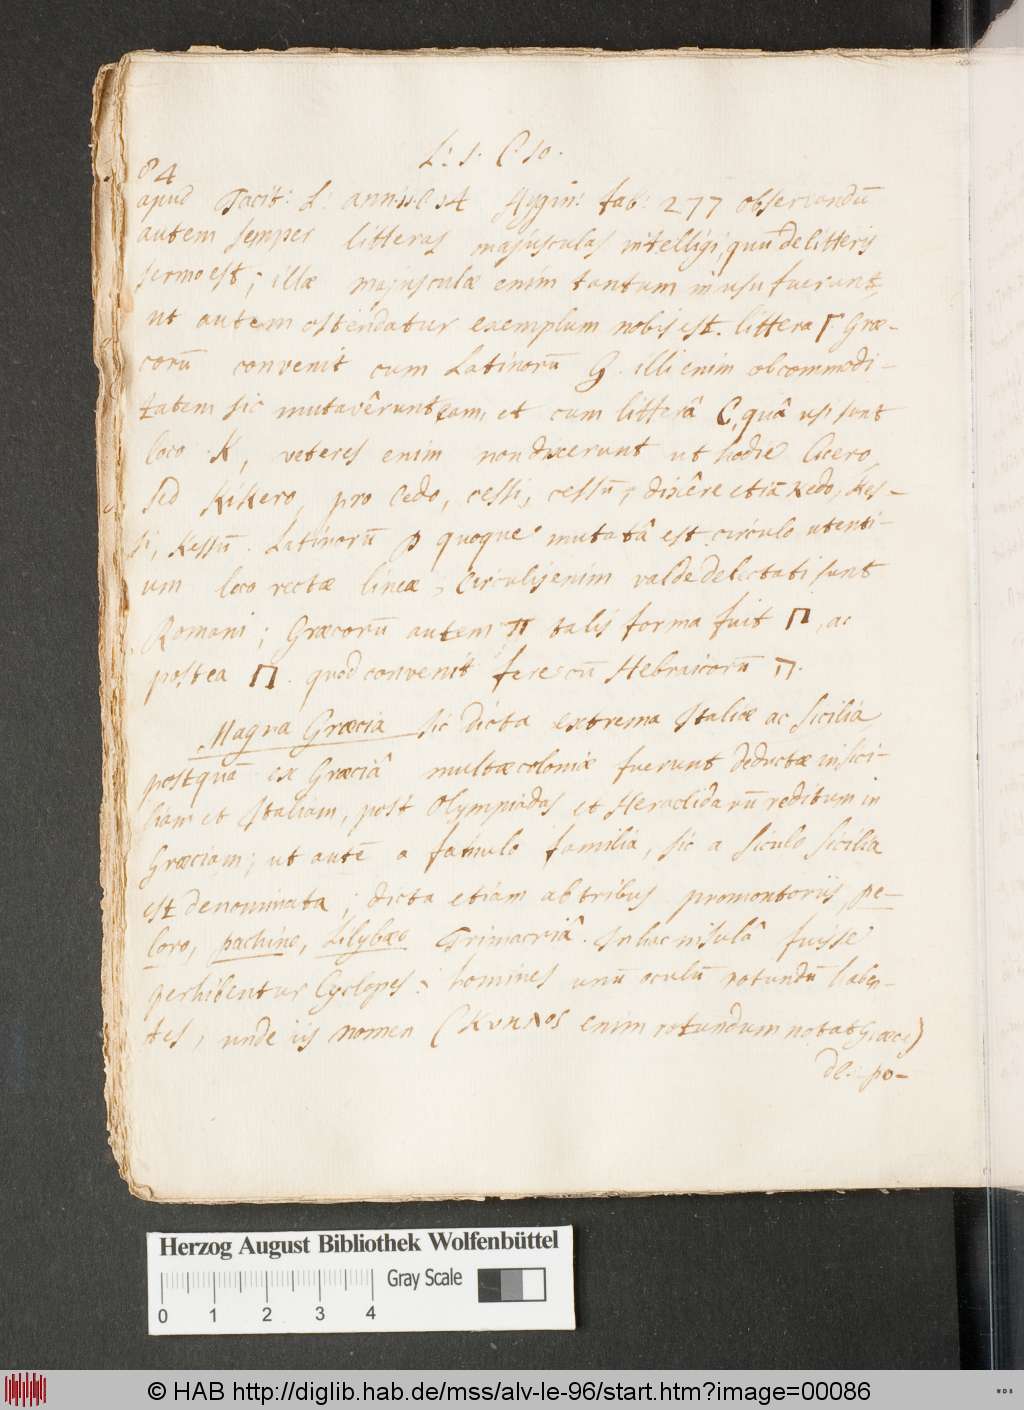 L: 1. C: 10.
84
apud Tacit: L: ann: 11 C 14 Hygin: fab: 277 observandū
autem semper litteras majusculas intelligi, quū de litteris
sermo est; illæ majusculæ enim tantum in usu fuerunt,
ut autem ostendatur exemplum nobis est. littera Γ Græ-
corū convenit cum Latinorū G. illi enim ob commodi-
tatem sic mutavêrunt eam, et cum litterâ C, quâ usi sunt
loco K, veteres enim non dixerunt ut hodie Cicero,
sed Kikero, pro Cedo, cessi, cessū, dixêre etiā Kedo, Kes-
si, Kessū. Latinorū P quoque mutatâ est circulo utenti-
um loco rectæ lineæ, Circulis enim valde delectati sunt
Romani; Græcorū autem π talis forma fuit Π, ac
postea Π. quod convenit fere cū Hebraicorū ח.
Magna Græcia sic dicta extrema Italiæ ac Sicilia
postquā ex Græciâ multæ coloniæ fuerunt deductæ in Sici-
liam et Italiam, post Olympiadas et Heraclidarū reditum in
Græciam; ut autē a famulo familia, sic a Siculo Sicilia
est denominata; dicta etiam ab tribus promontoriis, pe-
loro, pachino, Lilybæo Trimacriâ. In hac insulâ fuisse
perhibentur Cyclopes: homines unū oculū rotundū haben-
tes, unde iis nomen (κυκλος enim rotundum notat Græce)
de: po-
Herzog August Bibliothek Wolfenbüttel
Gray Scale
0 1 2 3 4
© HAB http://diglib.hab.de/mss/alv-le-96/start.htm?image=00086